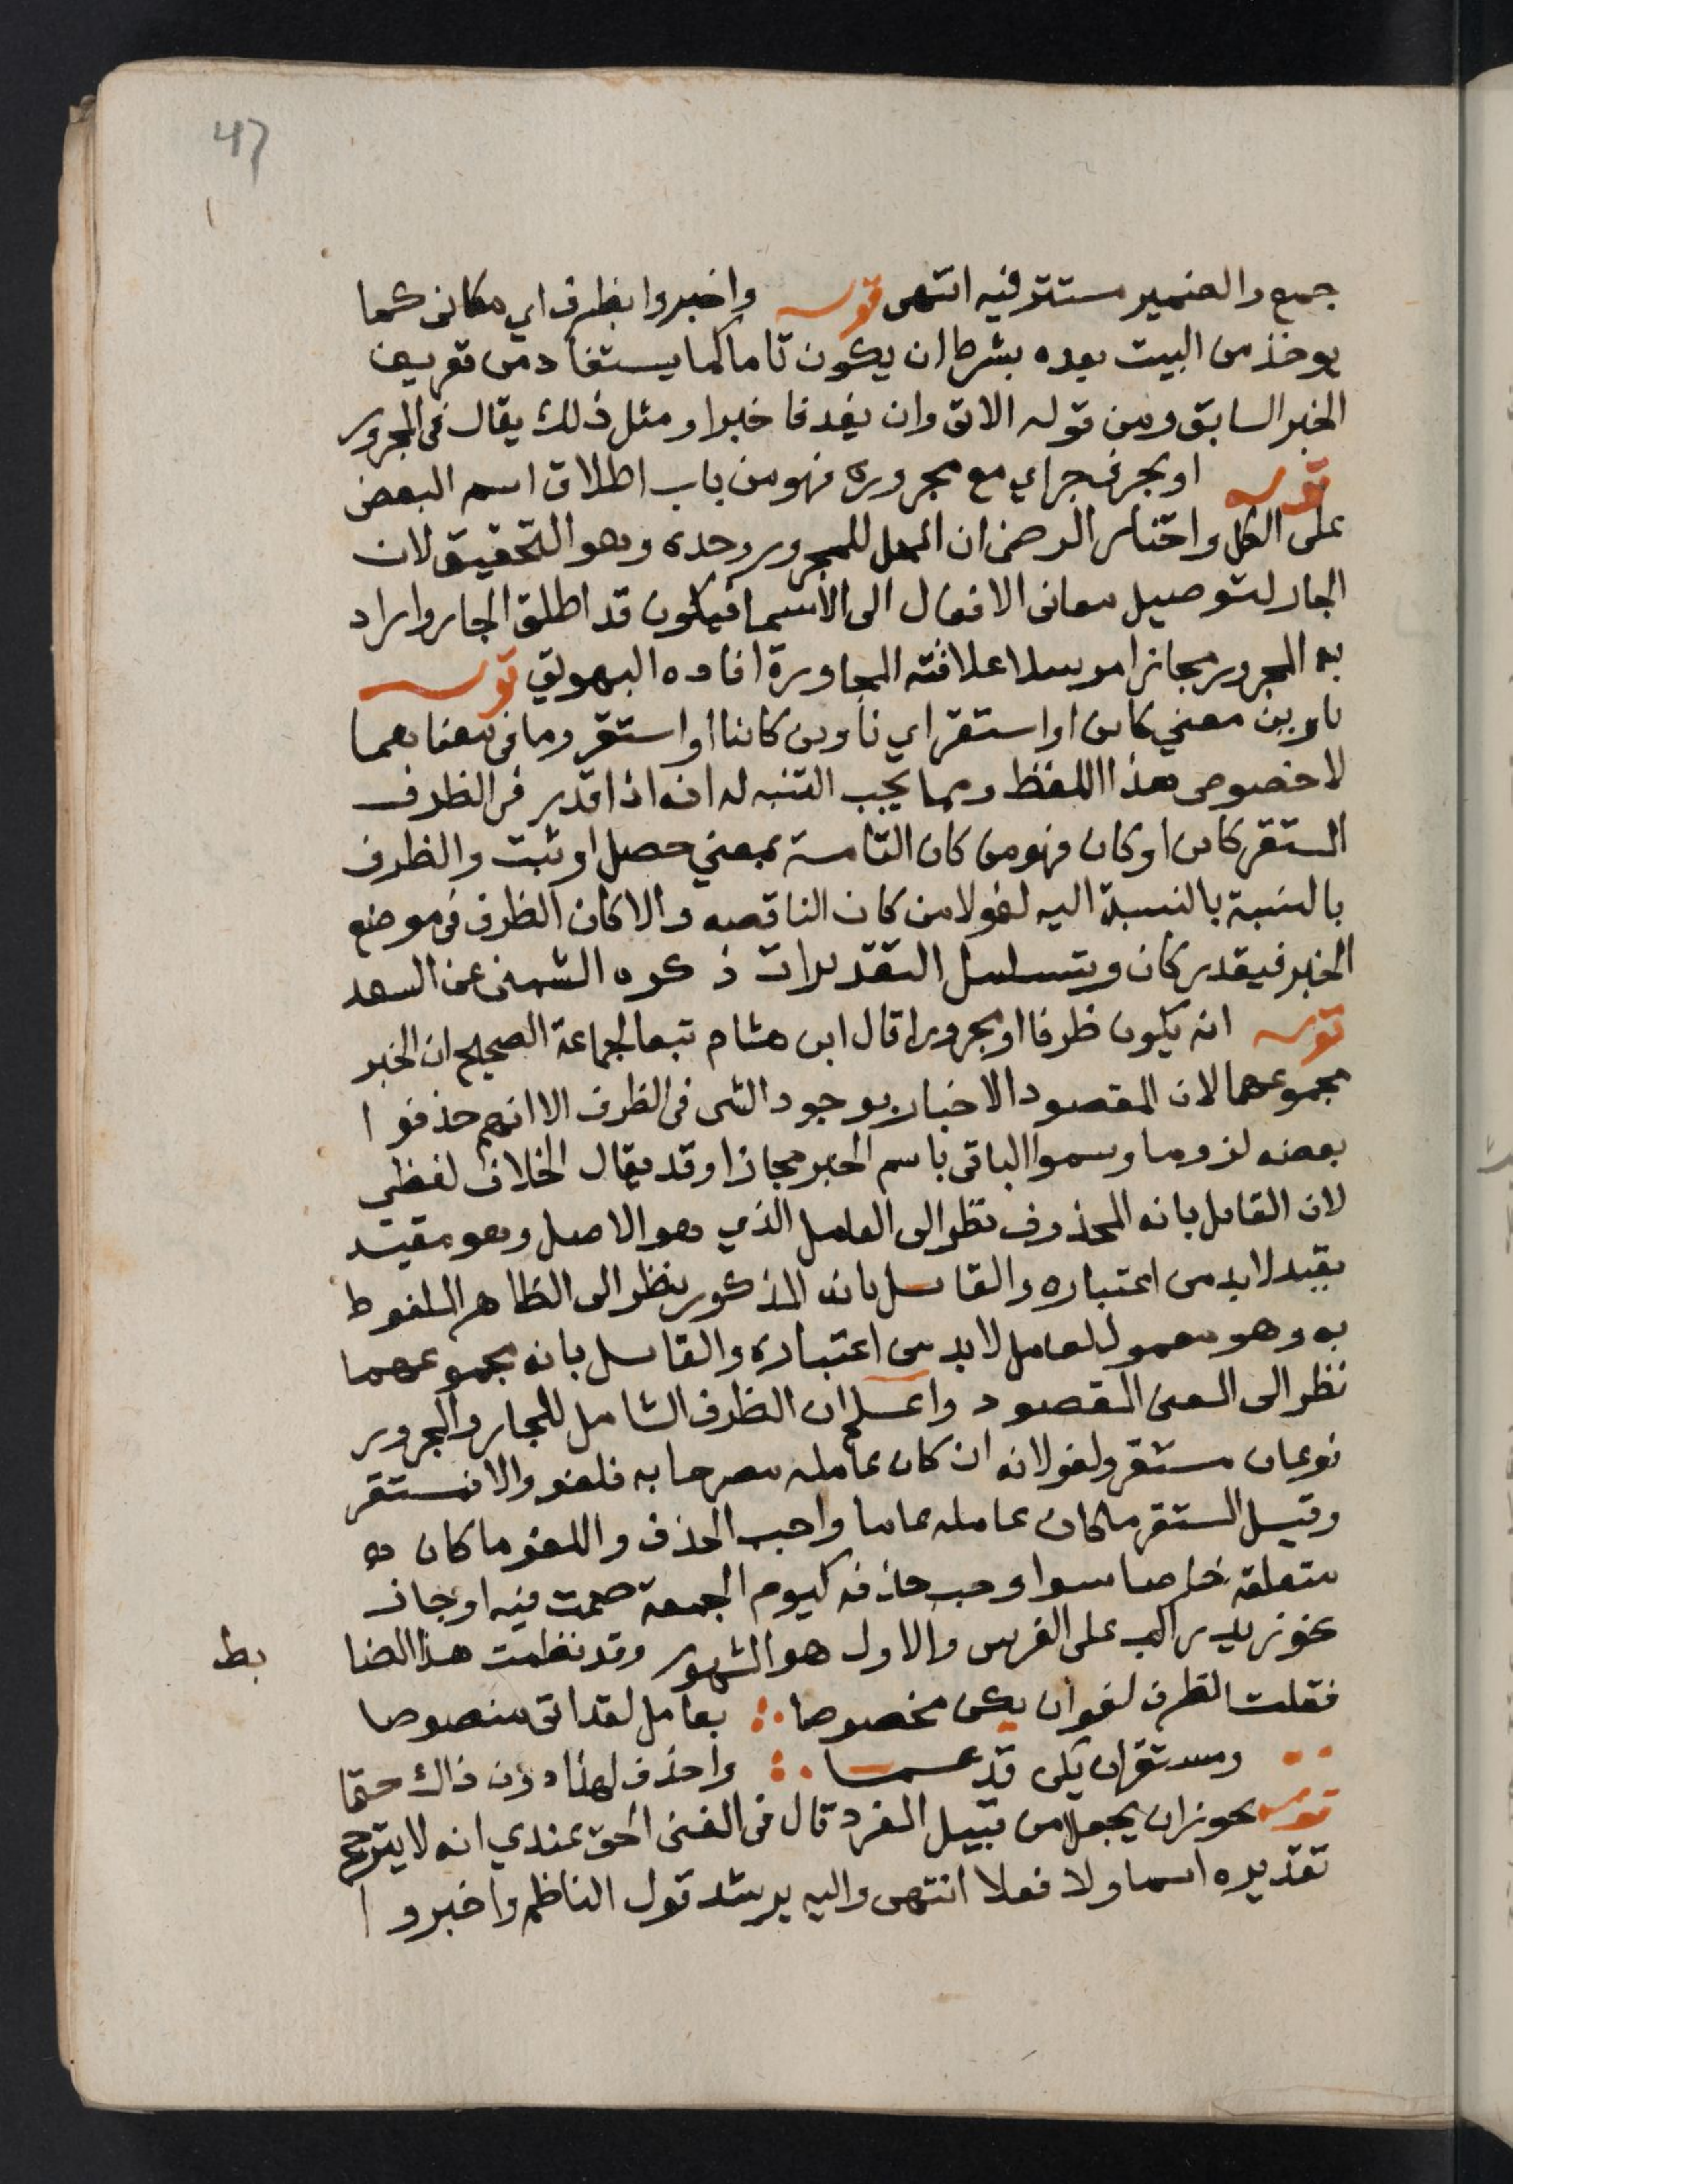 47
جمع والضمير مستتر فيه انتهى قوله واخبروا بظرف اي مكاني كما
يوخذ من البيت بعده بشرط ان يكون تاما كما يستفاد من تعريف
الخبر السابق ومن قوله الاتي وان يفد فاخبرا ومثل ذلك يقال في المجرور
قوله او بحرف جر اي مع مجروره فهو من باب اطلاق اسم البعض
على الكل واختار الرضى ان المحل للمجرور وحده وهو التحقيق لان
الجار لتوصيل معانى الافعال الى الاسما فيكون قد اطلق الجار واراد
به المجرور مجازا مرسلا علاقته المجاورة افاده البهوتي قوله
ناوين معني كاين او استقر اي ناوين كاينا او استقر وما في معناهما
لا خصوص هذا اللفظ ومما يجب التنبه له انه اذا قدر في الظرف
المستقر كاين او كان فهو من كان التامة بمعني حصل او ثبت والظرف
بالنسبة بالنسبة اليه لغو لا من كان الناقصه والا كان الظرف في موضع
الخبر فيقدر كان ويتسلسل التقديرات ذكره الشمنى عن السعد
قوله انه يكون ظرفا او مجرورا قال ابن هشام تبعا لجماعة الصحيح ان الخبر
مجموعهما لان المقصود الاخبار بوجود الشى في الظرف الا انهم حذفوا
بعضه لزوما وسموا الباقى باسم الخبر مجازا وقد يقال الخلاف لفظي
لان القايل بانه المحذوف نظر الى العامل الذي هو الاصل وهو مقيد
بقيد لا بد من اعتباره والقايل بانه المذكور نظر الى الظاهر الملفوظ
به وهو معمول لعامل لا بد من اعتباره والقايل بانه مجموعهما
نظر الى المعنى المقصود واعلم ان الظرف الشامل للجار والمجرور
نوعان مستقر ولغو لانه ان كان عامله مصرحا به فلغو والا فمستقر
وقيل المستقر ما كان عامله عاما واجب الحذف واللغو ما كان
متعلقه خاصا سوا وجب حذفه كيوم الجمعة صمت فيه او جاز
نحو زيد راكب على الفرس والاول هو المشهور وقد نظمت هذا الضا
بط
فقلت الظرف لغو ان يكن مخصوصا بعامل لقد اتى منصوصا
ومستقر ان يكن قد عما واحذف لهذا دون ذاك حتما
قوله يجوز ان يجعلا من قبيل المفرد قال في المغنى الحق عندي انه لا يترجح
تقديره اسما ولا فعلا انتهى واليه يرشد قول الناظم واخبروا